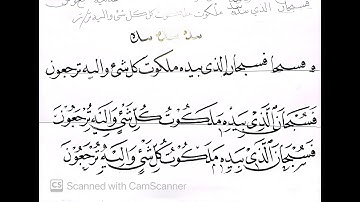 فسبحان الذي بيده ملكوت كل شئ واليه تر
سده سده سده
و فسبحا فسبحان الذي بيده ملكوت كل شئ واليه ترجعون
فَسُبْحَانَ الَّذِي بِيَدِهِ مَلَكُوتُ كُلِّ شَيْءٍ وَإِلَيْهِ تُرْجَعُونَ
فَسُبْحَانَ الَّذِي بِيَدِهِ مَلَكُوتُ كُلِّ شَيْءٍ وَإِلَيْهِ تُرْجَعُونَ
CS Scanned with CamScanner